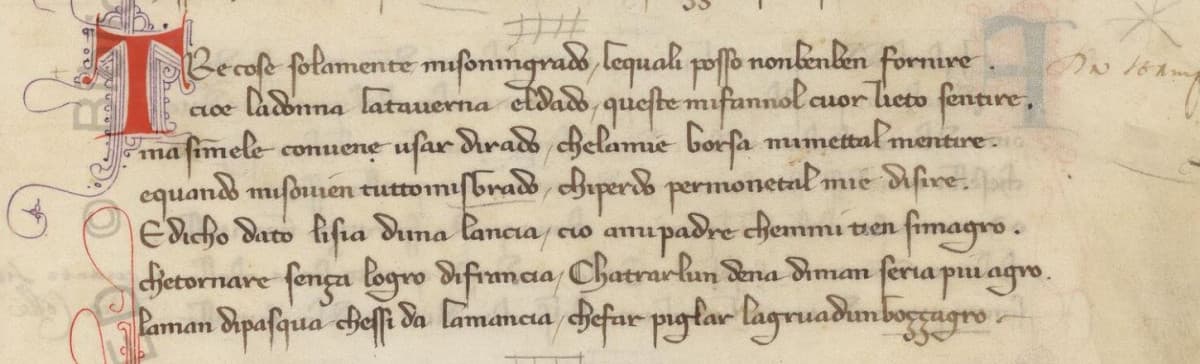 TRe cose solamente misoningrado / lequali posso nonbenben fornire .
cioe ladonna latauerna eldado / queste mifannol cuor lieto sentire .
ma simele conuene usar dirado / chelamie borsa mimettal mentire .
equando misouien tuttomisbrado / chiperdo permonetal mie disire .
E dicho dato lisia duna lancia / cio amipadre chemmi tien simagro .
chetornare sença logro difrancia / Chatrarlun dena diman seria piu agro .
laman dipasqua chessi da lamancia / chefar piglar lagruadunboççagro .